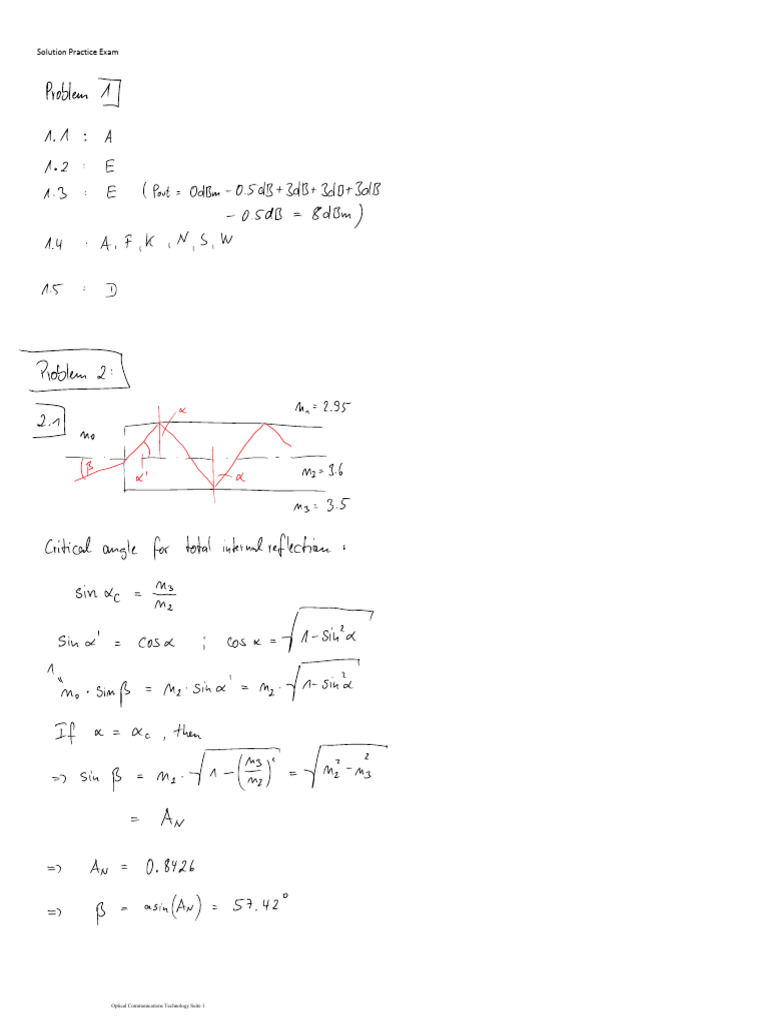 Solution Practice Exam
Problem 1
1.1 : A
1.2 : E
1.3 : E (Pout = 0dBm - 0.5dB + 3dB + 3dB + 3dB
- 0.5dB = 8dBm)
1.4 : A, F, K, N, S, W
1.5 : D
Problem 2:
2.1
n₁ = 2.95
α
n₀
β
α'
α
n₂ = 3.6
n₃ = 3.5
Critical angle for total internal reflection:
sin αc = n₃/n₂
sin α' = cos α ; cos α = √(1 - sin²α)
1
n₀ · sin β = n₂ · sin α' = n₂ · √(1 - sin²α)
If α = αc, then
=> sin β = n₂ · √(1 - (n₃/n₂)²) = √(n₂² - n₃²)
= AN
=> AN = 0.8426
=> β = asin(AN) = 57.42°
Optical Communications Technology Seite 1